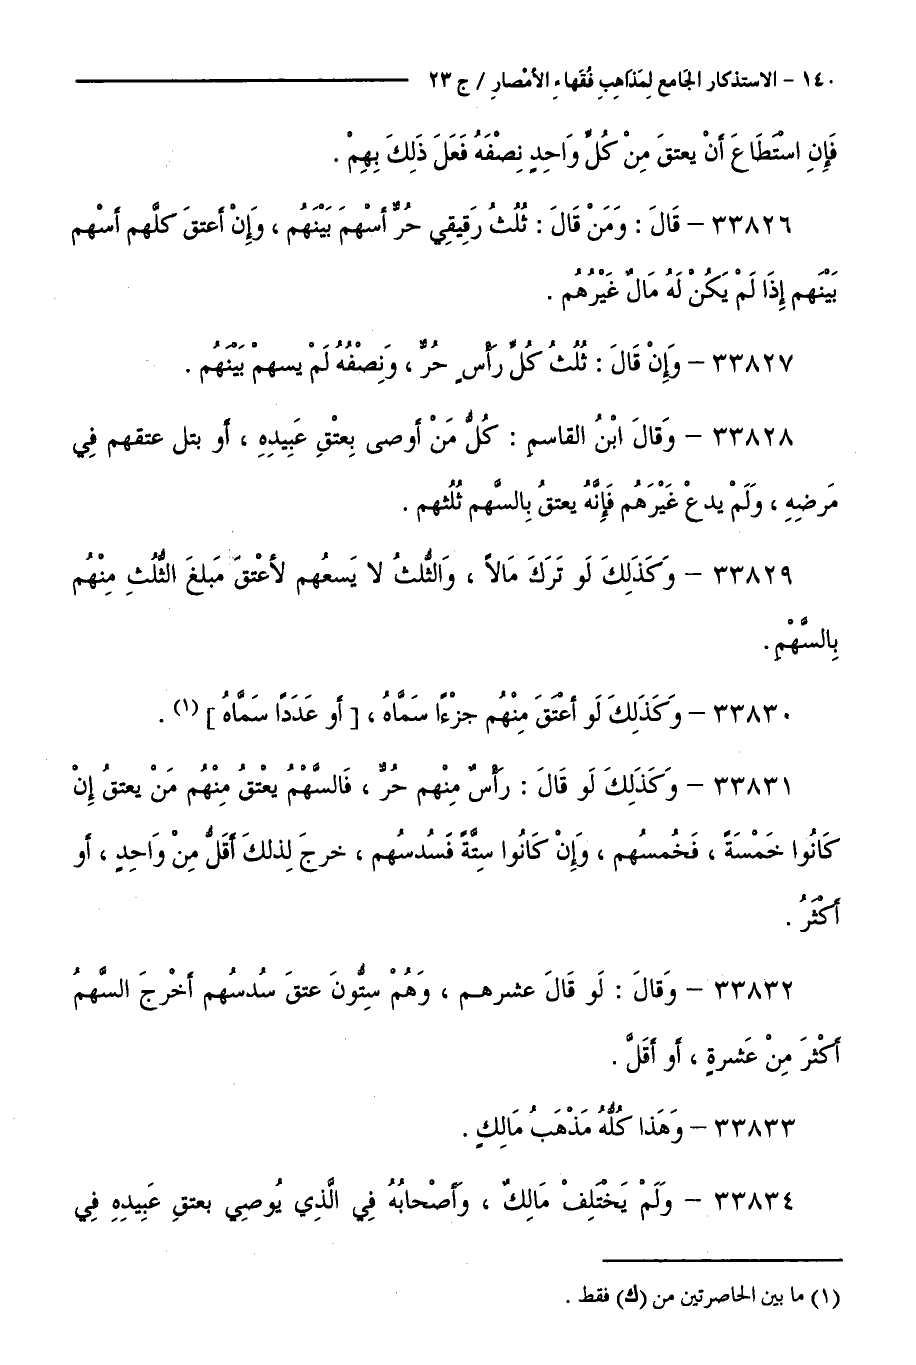 ١٤٠ - الاستذكار الجَامع لِمَذاهِبِ فُقَهاءِ الأَمْصارِ / ج ٢٣
فَإِنِ اسْتَطَاعَ أَنْ يعتقَ مِنْ كُلِّ وَاحدٍ نِصْفَهُ فَعَلَ ذَلِكَ بِهِمْ .
٣٣٨٢٦ - قَالَ : وَمَنْ قَالَ : ثُلُثُ رَقِيقِي حُرٌّ أَسْهمَ بَيْنَهُم ، وَإِنْ أعتقَ كلَّهم أسْهم
بَيْنَهم إِذَا لَمْ يَكُنْ لَهُ مَالٌ غَيْرُهُم .
٣٣٨٢٧ - وَإِنْ قَالَ : ثُلُثُ كُلِّ رَأْسٍ حُرٌّ ، وَنِصْفُهُ لَمْ يسهمْ بَيْنَهُم .
٣٣٨٢٨ - وَقَالَ ابْنُ القاسمِ : كُلُّ مَنْ أَوصى بِعتْقِ عَبِيدِهِ ، أَو بتل عتقهم فِي
مَرضِهِ ، وَلَمْ يدعْ غَيْرَهُم فَإِنَّهُ يعتقُ بِالسَّهْم ثُلُثهم .
٣٣٨٢٩ - وَكَذَلِكَ لَو تَرَكَ مَالاً ، وَالثُّلثُ لا يَسعُهم لأعْتقَ مَبلغَ الثُّلُثِ مِنْهُم
بِالسَّهْمِ.
٣٣٨٣٠ - وَكَذَلِكَ لَو أَعْتَقَ مِنْهُم جزْءًا سَمَّاهُ ، [ أو عَدَدًا سَمَّاهُ ] (١) .
٣٣٨٣١ - وَكَذَلِكَ لَو قَالَ : رَأْسٌ مِنْهم حُرٌّ ، فَالسَّهْمُ يعْتقُ مِنْهُم مَنْ يعتقُ إِنْ
كَانُوا خَمْسَةً ، فَخُمسُهم ، وَإِنْ كَانُوا ستَّةً فَسُدسهم ، خرجَ لِذلكَ أَقَلُّ مِنْ وَاحِدٍ ، أَو
أَكْثَرُ .
٣٣٨٣٢ - وَقَالَ : لَو قَالَ عشرهم ، وَهُمْ ستُّونَ عتقَ سُدسُهم أخْرجَ السَّهمُ
أَكْثَرَ مِنْ عَشرةٍ ، أَو أَقَلَّ .
٣٣٨٣٣ - وَهَذا كُلُّهُ مَذْهَبُ مَالِكٍ .
٣٣٨٣٤ - وَلَمْ يَخْتَلِفْ مَالِكٌ ، وَأَصْحَابُهُ فِي الَّذِي يُوصِي بعتقِ عَبِيدِهِ فِي
(١) ما بين الحاصرتين من (ك) فقط .